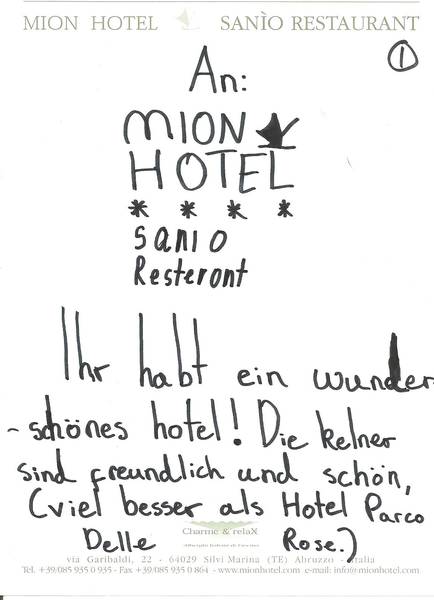 MION HOTEL SANÌO RESTAURANT
1
An:
MION
HOTEL
* * * *
Sanio
Resteront
Ihr habt ein wunder
-schönes hotel! Die kelner
sind freundlich und schön,
(viel besser als Hotel Parco
Delle Rose.)
Charme & relaX
via Garibaldi, 22 - 64029 Silvi Marina (TE) Abruzzo - Italia
Tel. +39/085 935 0 935 - Fax +39/085 935 0 864 - www.mionhotel.com e-mail: info@mionhotel.com